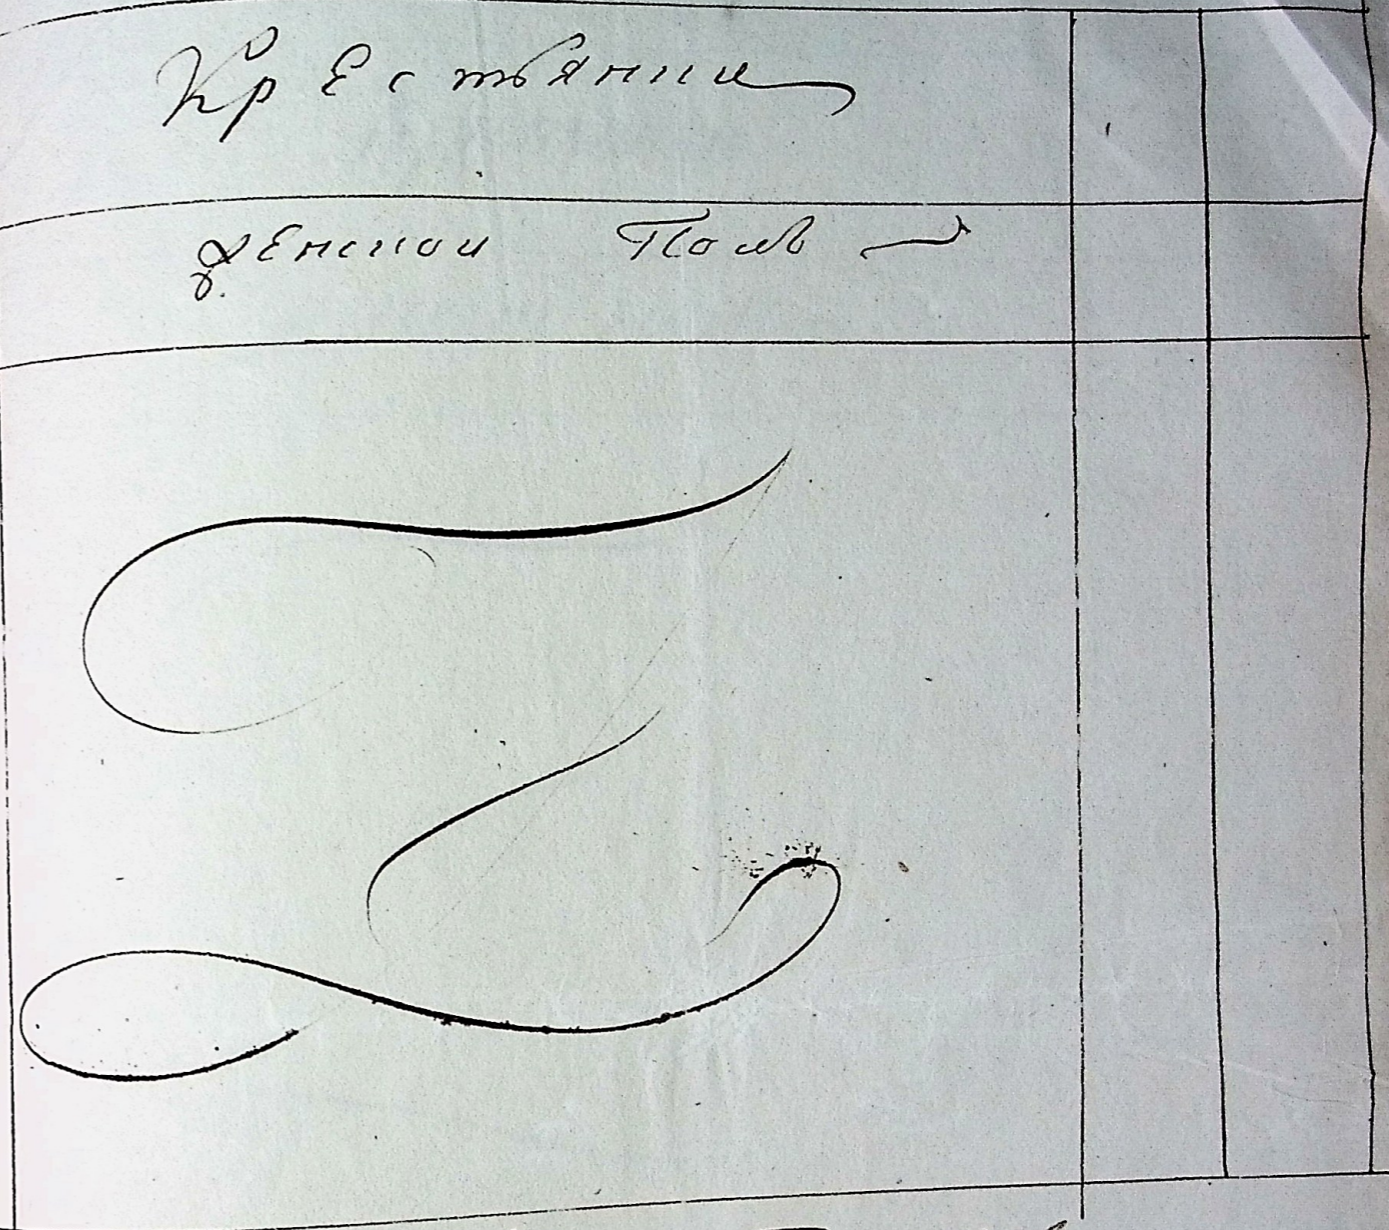 Крестьянин
женской Полъ